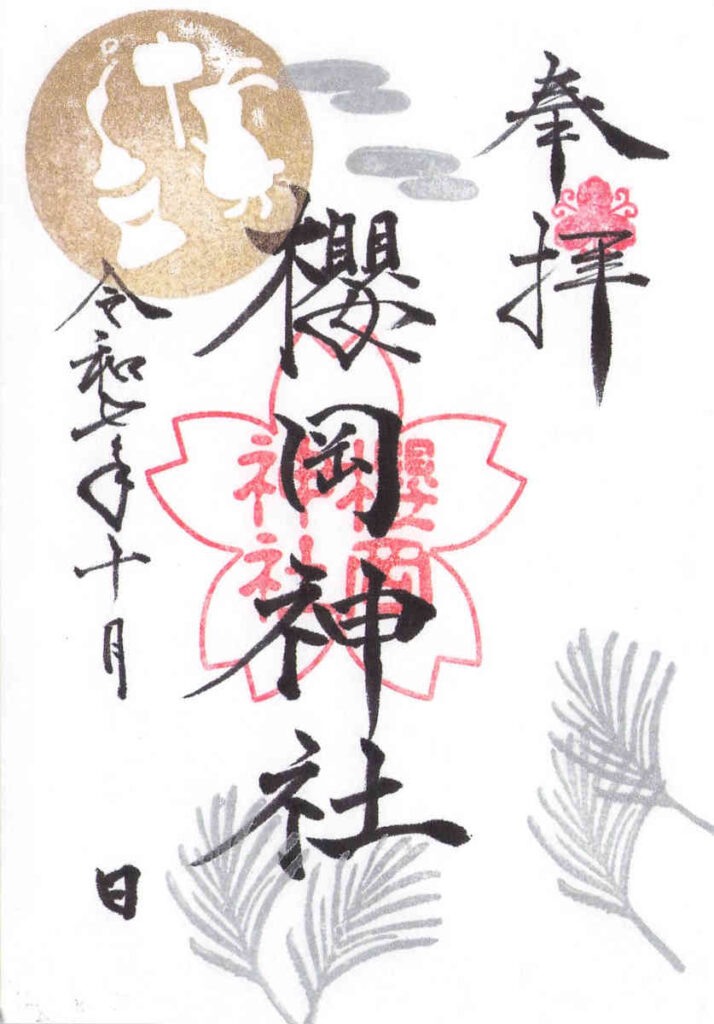 奉拝
櫻岡神社
櫻岡
神社
令和七年十月
日